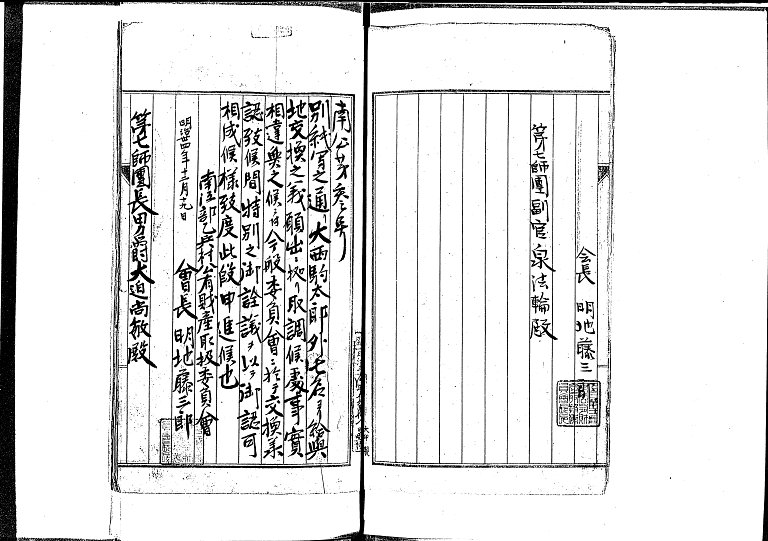 会長 明地藤三
第七師團副官泉法輪殿
南乙第参号
別紙写之通リ大西駒太郎外七名ヨリ給與
地交換之義願出ニ拠リ取調候處事實
相違無之候ニ付今般委員會ニ於テ交換承
認致候間特別之御詮議ヲ以テ御認可
相成候様致度此段申進候也
明治四年十二月十九日
南 部 村 有財産取扱委員會
會長 明地藤三郎
第七師團長男爵大迫尚敏殿